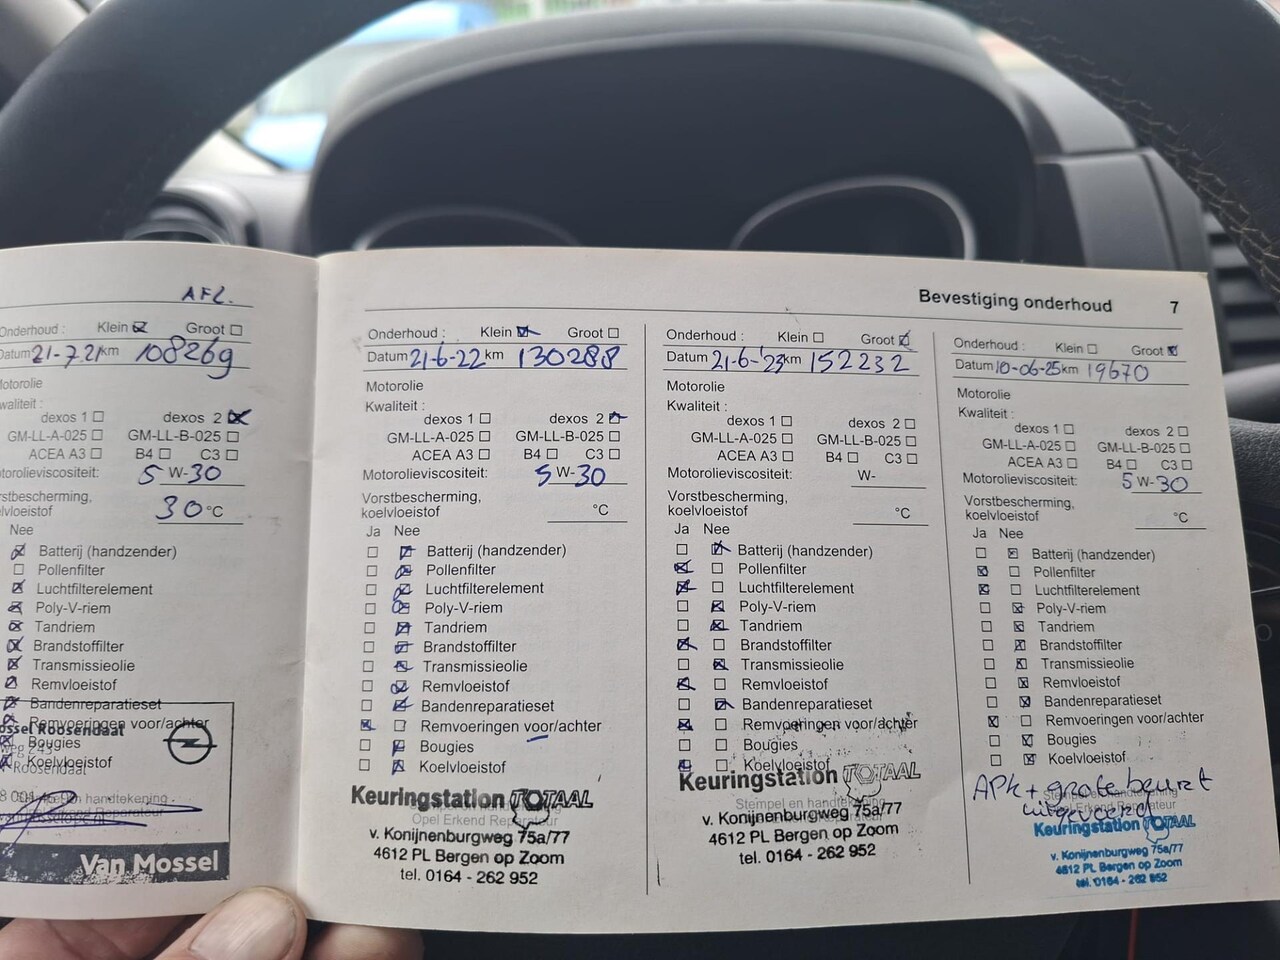 AFL.
Onderhoud : Klein Groot
Datum 21-7.21 km 108269
Motorolie
Kwaliteit :
dexos 1 dexos 2
GM-LL-A-025 GM-LL-B-025
ACEA A3 B4 C3
Motorolieviscositeit: 5 W-30
30 °C
Nee
Batterij (handzender)
Pollenfilter
Luchtfilterelement
Poly-V-riem
Tandriem
Brandstoffilter
Transmissieolie
Remvloeistof
Bandenreparatieset
Remvoeringen voor/achter
Bougies
Koelvloeistof
Roosendaal
Roosendaal
Van Mossel
Bevestiging onderhoud 7
Onderhoud : Klein Groot
Datum 21-6-22 km 130288
Motorolie
Kwaliteit :
dexos 1 dexos 2
GM-LL-A-025 GM-LL-B-025
ACEA A3 B4 C3
Motorolieviscositeit: 5 W-30
Vorstbescherming,
koelvloeistof °C
Ja Nee
Batterij (handzender)
Pollenfilter
Luchtfilterelement
Poly-V-riem
Tandriem
Brandstoffilter
Transmissieolie
Remvloeistof
Bandenreparatieset
Remvoeringen voor/achter
Bougies
Koelvloeistof
Keuringstation TOTAAL
Stempel en handtekening
Opel Erkend Reparateur
v. Konijnenburgweg 75a/77
4612 PL Bergen op Zoom
tel. 0164 - 262 952
Onderhoud : Klein Groot
Datum 21-6-'23 km 152232
Motorolie
Kwaliteit :
dexos 1 dexos 2
GM-LL-A-025 GM-LL-B-025
ACEA A3 B4 C3
Motorolieviscositeit: W-
Vorstbescherming,
koelvloeistof °C
Ja Nee
Batterij (handzender)
Pollenfilter
Luchtfilterelement
Poly-V-riem
Tandriem
Brandstoffilter
Transmissieolie
Remvloeistof
Bandenreparatieset
Remvoeringen voor/achter
Bougies
Koelvloeistof
Keuringstation TOTAAL
Stempel en handtekening
Opel Erkend Reparateur
v. Konijnenburgweg 75a/77
4612 PL Bergen op Zoom
tel. 0164 - 262 952
Onderhoud : Klein Groot
Datum 10-06-25 km 19670
Motorolie
Kwaliteit :
dexos 1 dexos 2
GM-LL-A-025 GM-LL-B-025
ACEA A3 B4 C3
Motorolieviscositeit: 5 W-30
Vorstbescherming,
koelvloeistof °C
Ja Nee
Batterij (handzender)
Pollenfilter
Luchtfilterelement
Poly-V-riem
Tandriem
Brandstoffilter
Transmissieolie
Remvloeistof
Bandenreparatieset
Remvoeringen voor/achter
Bougies
Koelvloeistof
APK + grote beurt
uitgevoerd
Keuringstation TOTAAL
v. Konijnenburgweg 75a/77
4612 PL Bergen op Zoom
tel. 0164 - 262 952